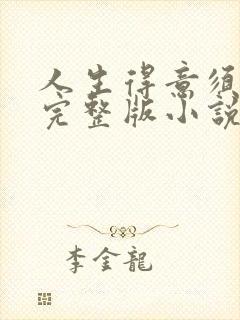 人生得意須
完整版小說
李金龍